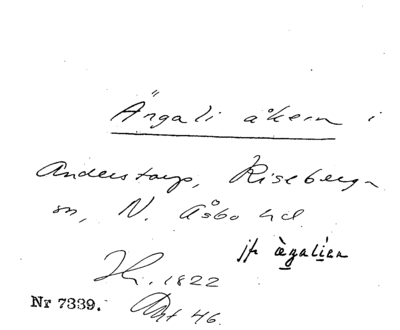 Ängali åkern i
Anderstorp, Riseberga
sn, N. Åsbo hd
jfr ægalien
Hr. 1822
Nr 7339. Dht 46.